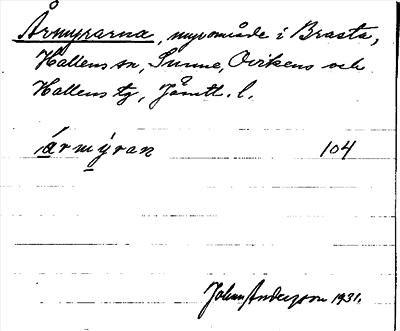 Årmyrarna, myrområde i Brasta,
Hallens sn, Sunne, Ovikens och
Hallens tg, Jämtl. l.
årmýran 104
Johan Anderzon 1931.